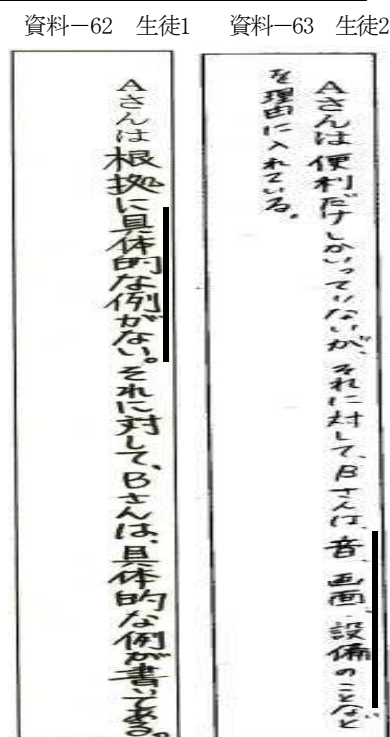 資料－62　生徒1
資料－63　生徒2
Aさんは根拠に具体的な例がない。それに対して、Bさんは、具体的な例が書いてある。
Aさんは便利だけしかいっていないが、それに対して、Bさんは、音、画面、設備のことなど
を理由に入れている。